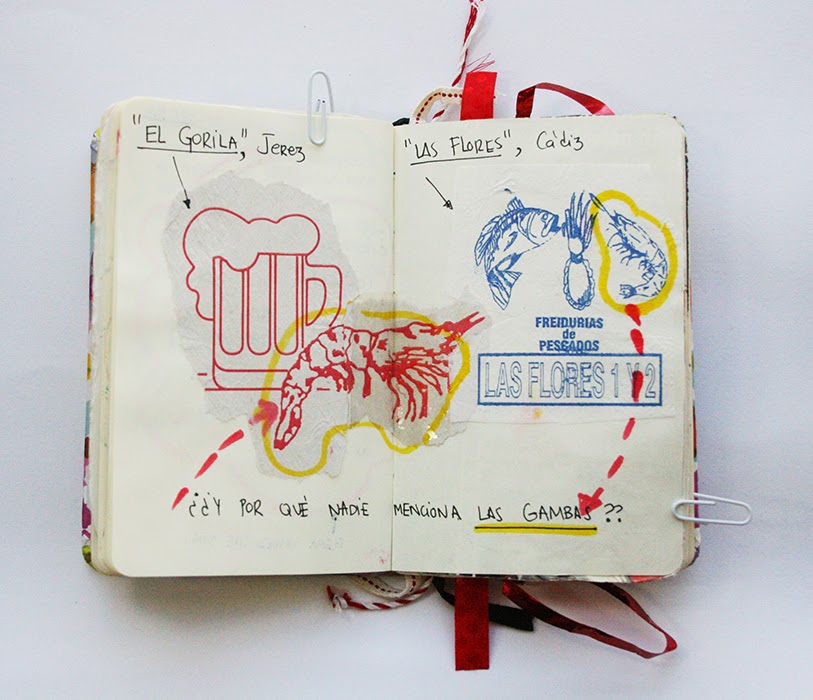 "EL GORILA", Jerez
"LAS FLORES", Cádiz
FREIDURIAS
de
PESCADOS
LAS FLORES 1 Y 2
¿¿Y POR QUÉ NADIE MENCIONA LAS GAMBAS??